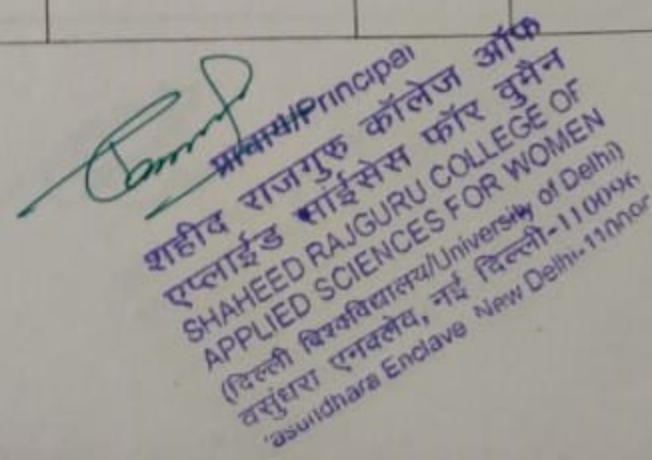 प्राचार्य/Principal
शहीद राजगुरु कॉलेज ऑफ
एप्लाईड साईसेस फॉर वुमैन
SHAHEED RAJGURU COLLEGE OF
APPLIED SCIENCES FOR WOMEN
(दिल्ली विश्वविद्यालय/University of Delhi)
वसुंधरा एनक्लेव, नई दिल्ली-110096
asundhara Enclave New Delhi-